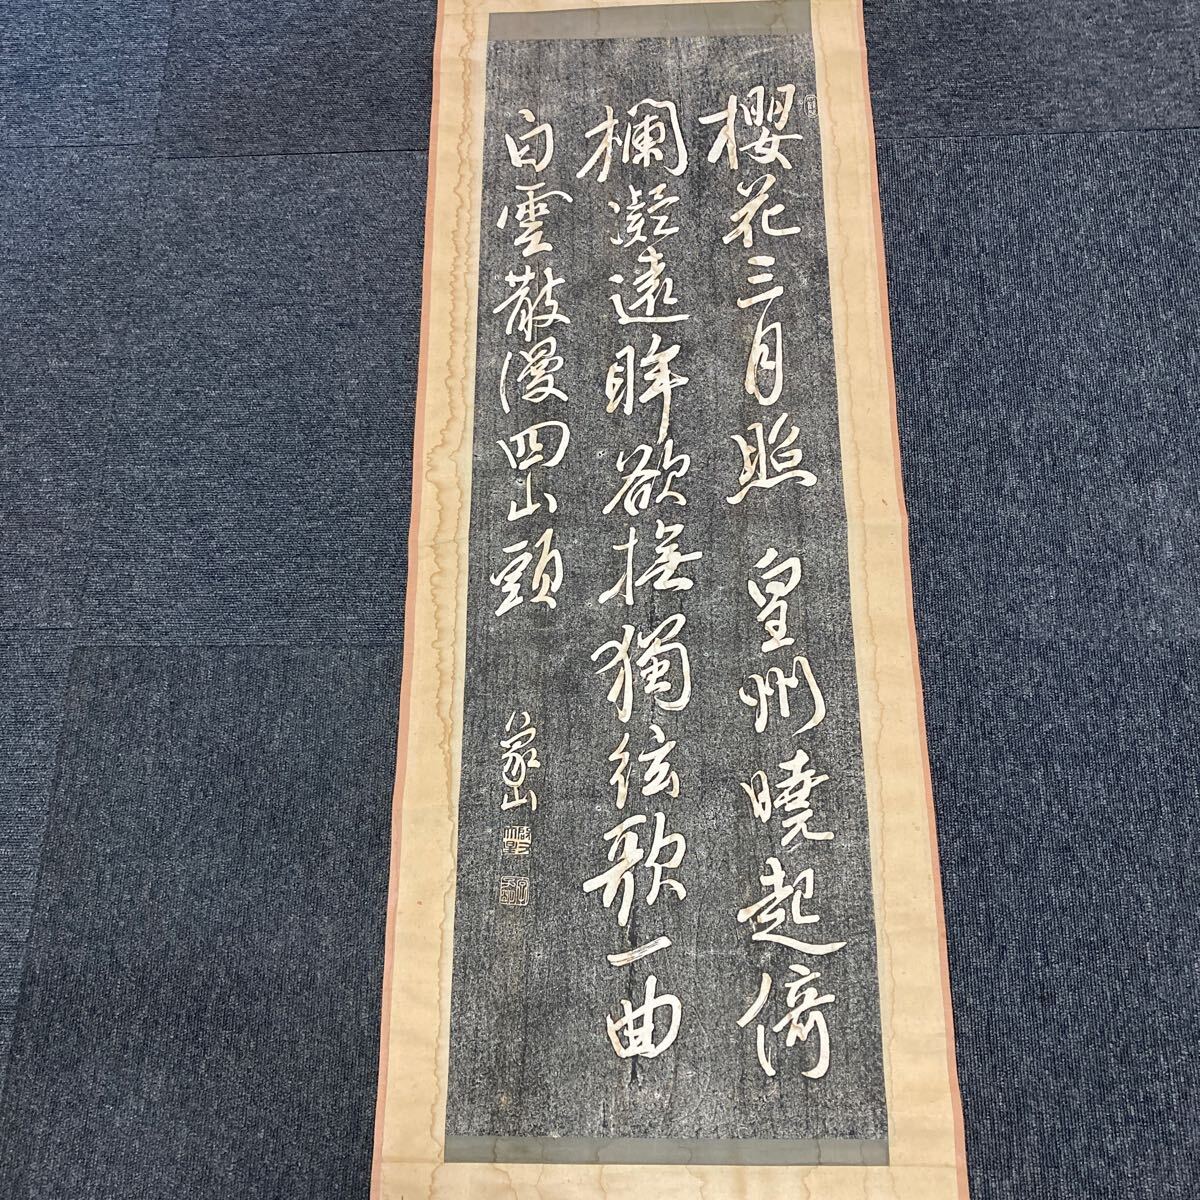 櫻花三月照皇州曉起倚
欄凝遠眸欲撫獨弦歌一曲
白雲散漫四山頭
蒙山